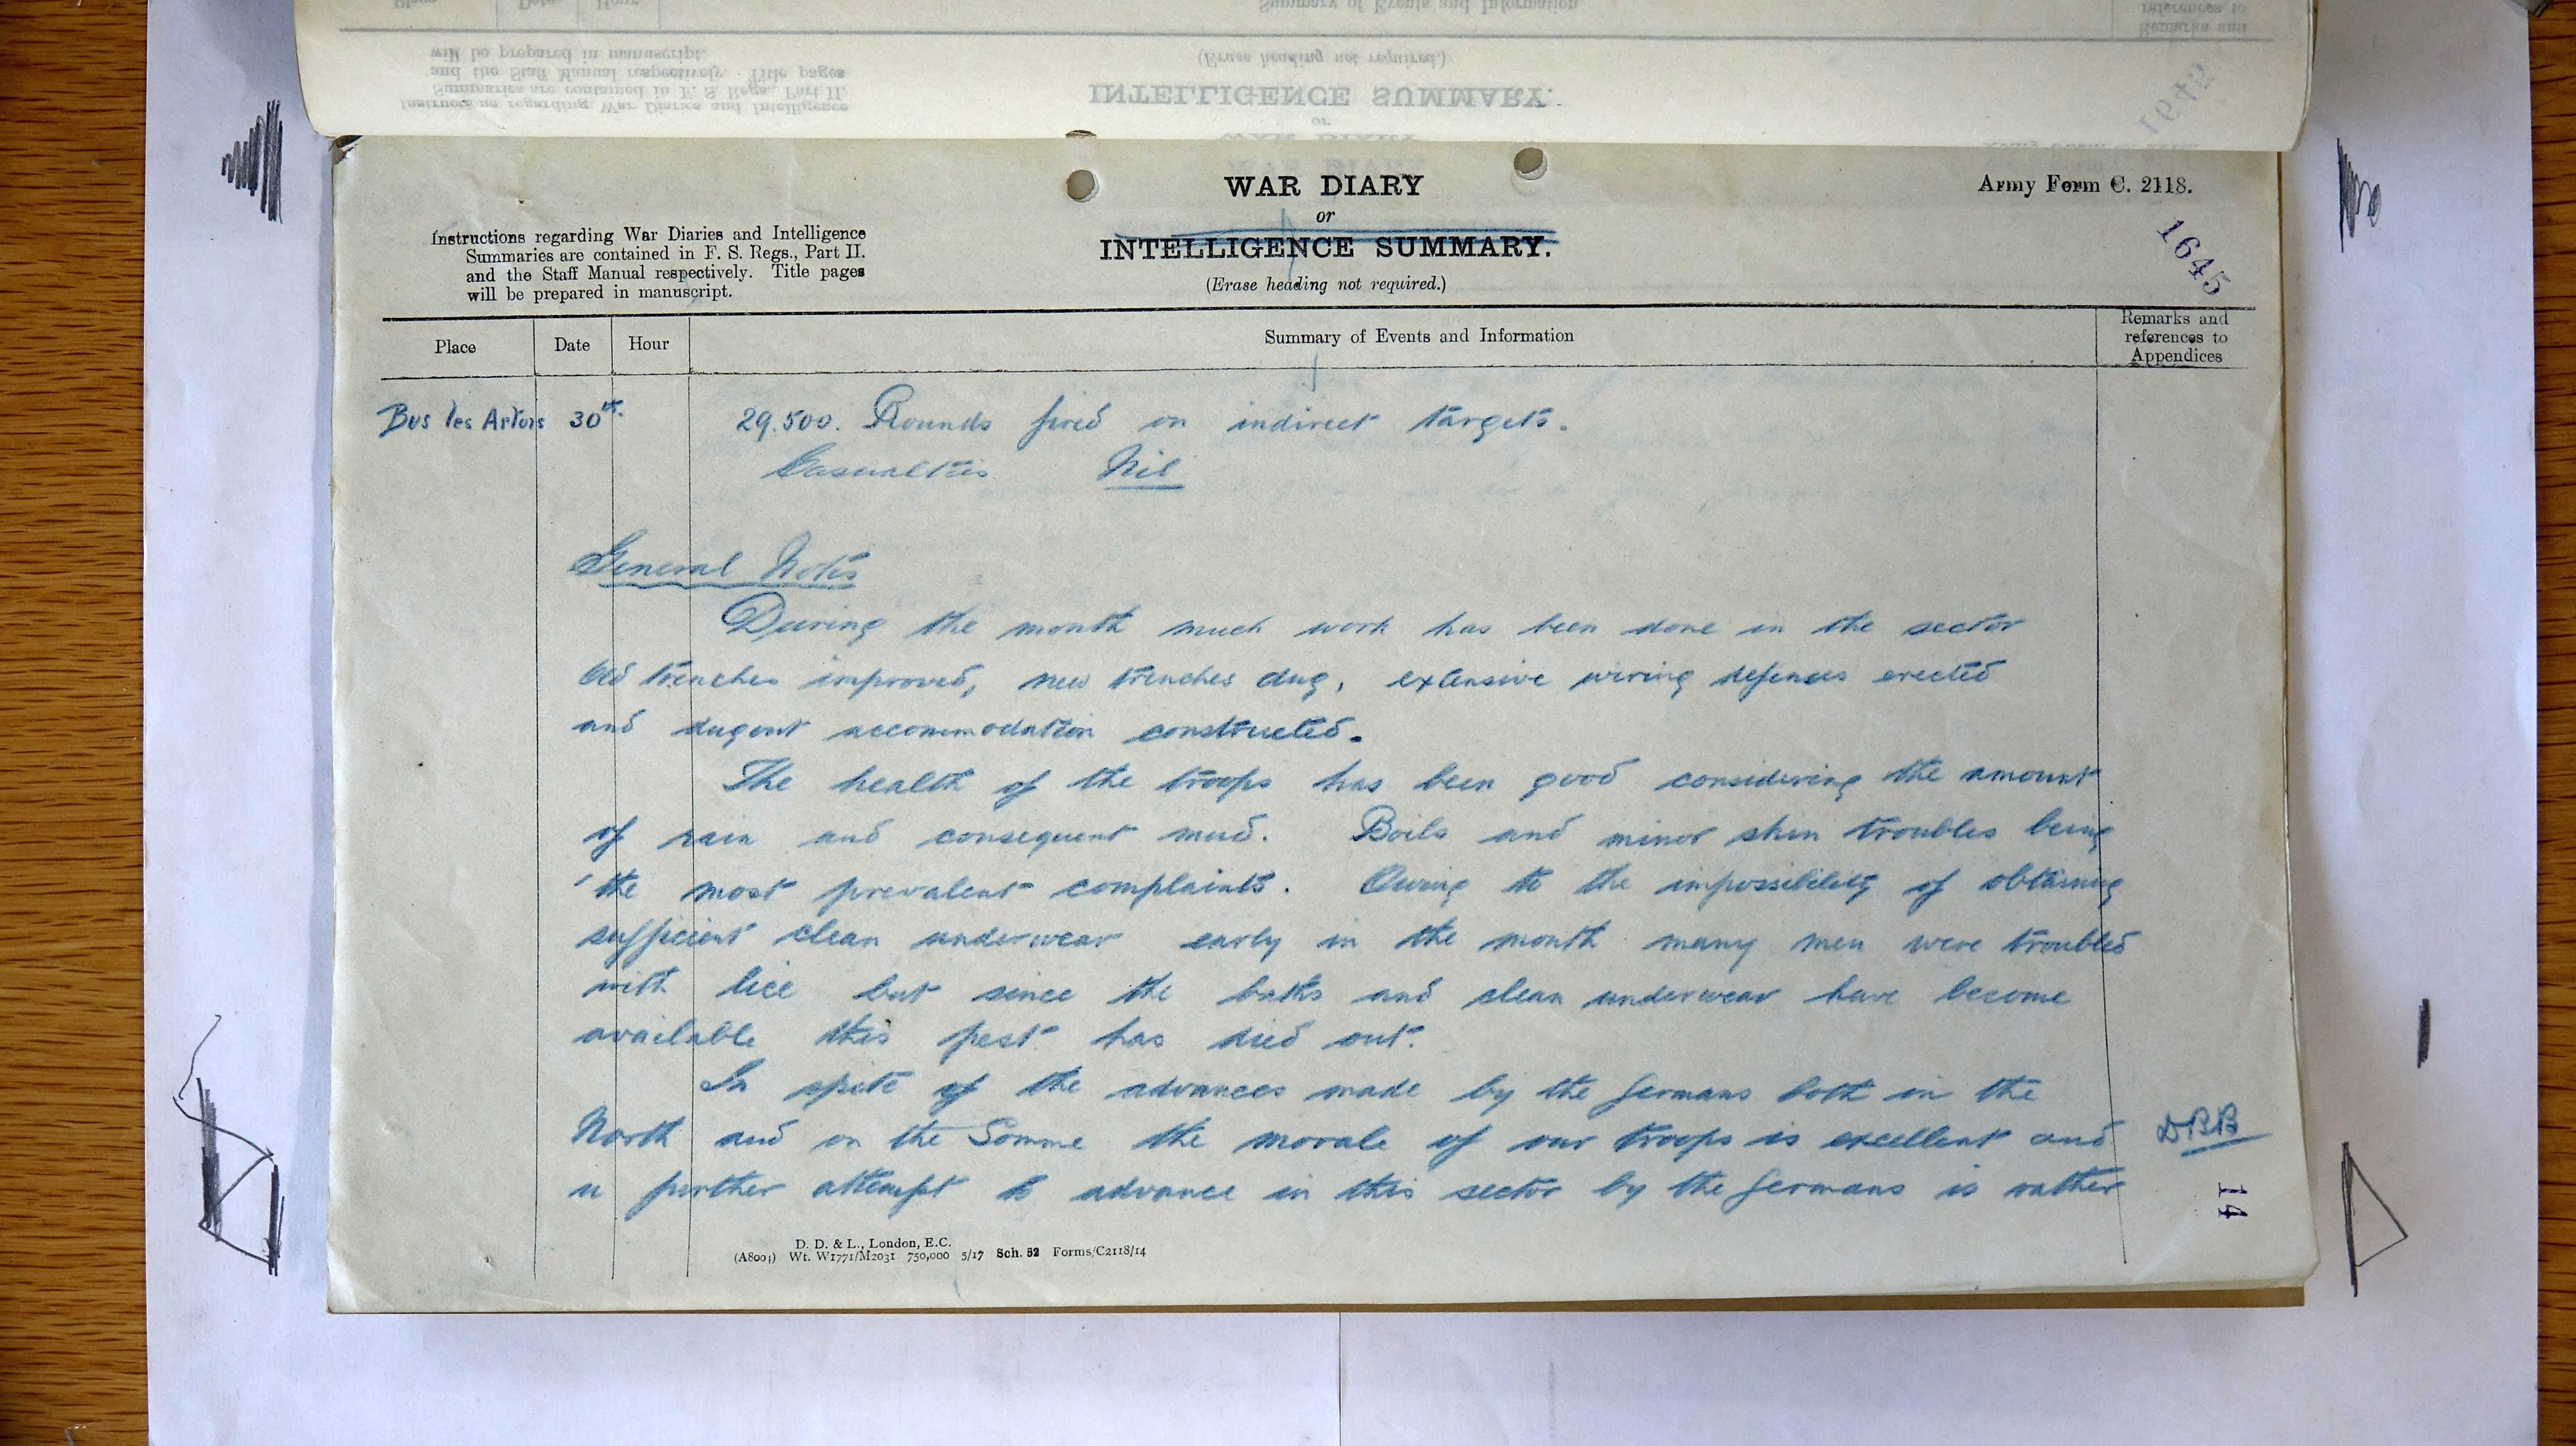 WAR DIARY
or
INTELLIGENCE SUMMARY.
(Erase heading not required.)
Army Form C. 2118.
1645
Instructions regarding War Diaries and Intelligence
Summaries are contained in F. S. Regs., Part II.
and the Staff Manual respectively. Title pages
will be prepared in manuscript.
Place Date Hour Summary of Events and Information Remarks and references to Appendices
Bus les Artois 30th. 29.500. Rounds fired on indirect targets.
Casualties Nil
General Notes
During the month much work has been done in the sector
Old trenches improved, new trenches dug, extensive wiring defences erected
and dugout accommodation constructed.
The health of the troops has been good considering the amount
of rain and consequent mud. Boils and minor skin troubles being
the most prevalent complaints. Owing to the impossibility of obtaining
sufficient clean underwear early in the month many men were troubled
with lice but since the baths and clean underwear have become
available this pest has died out.
In spite of the advances made by the Germans both in the
North and on the Somme the morale of our troops is excellent and DBB
a further attempt to advance in this sector by the Germans is rather
14
D. D. & L., London, E.C.
(A8004) Wt. W1771/M2031 750,000 5/17 Sch. 52 Forms/C2118/14